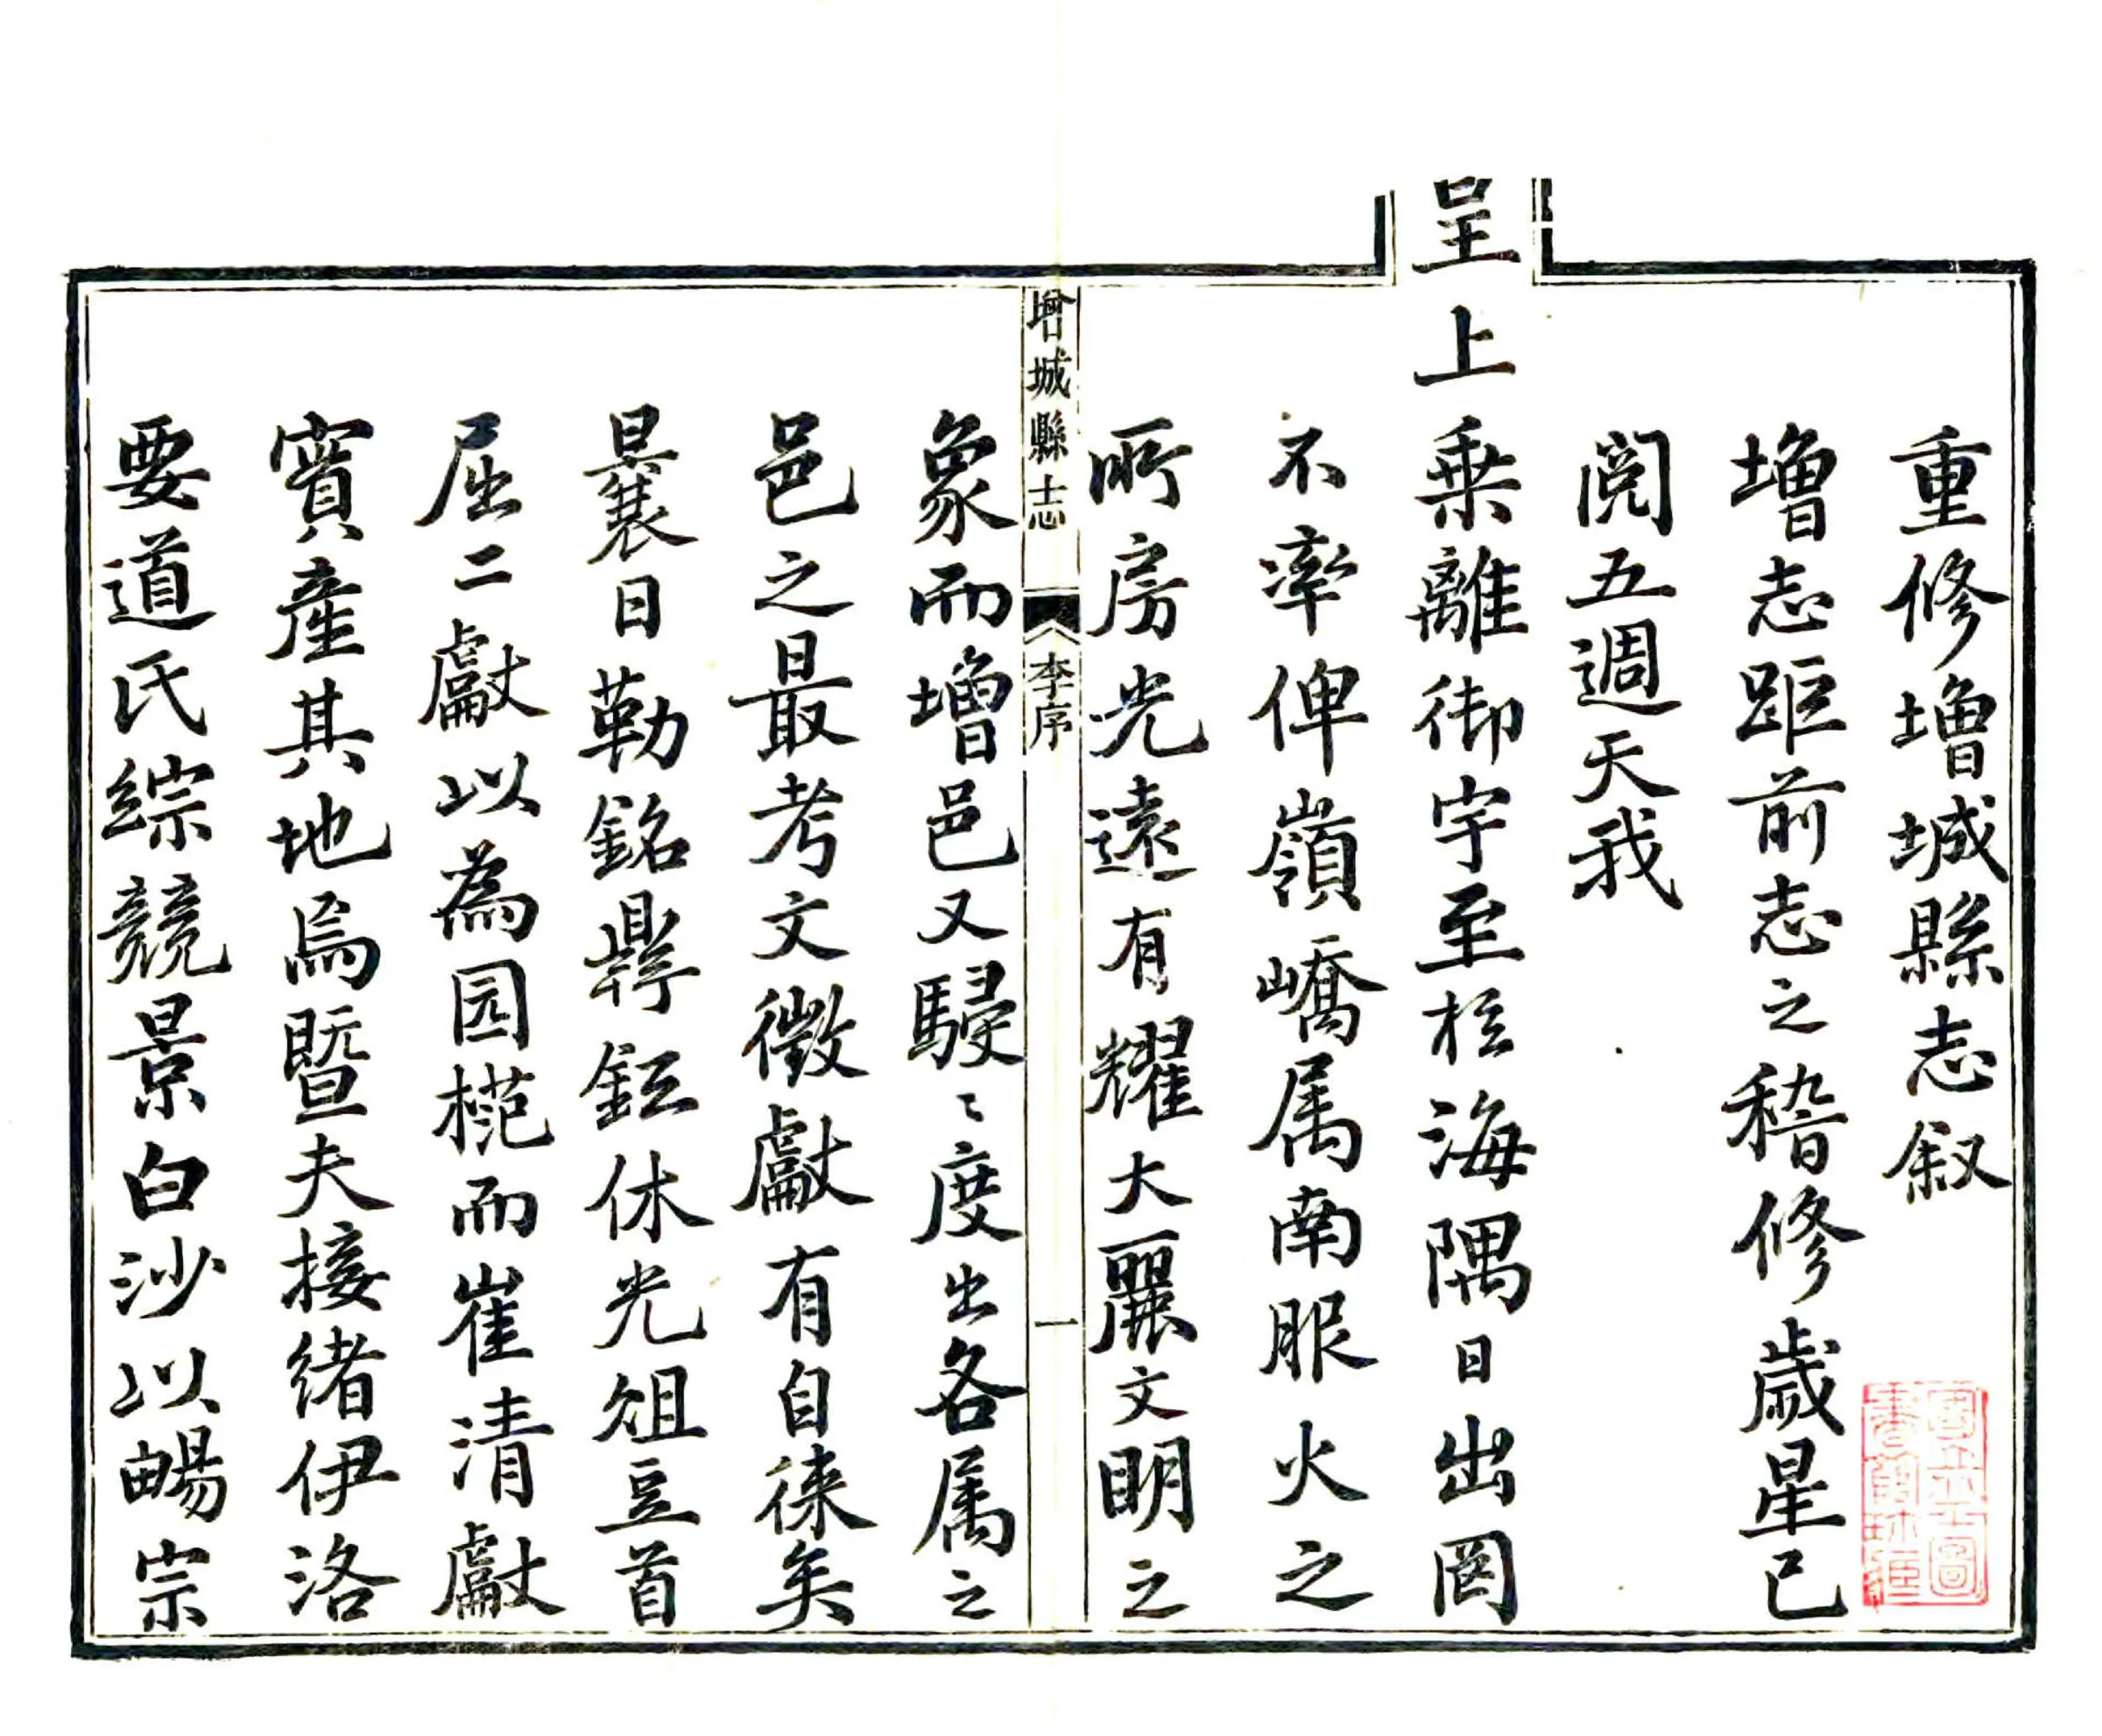 重修增城縣志叙
增志距前志之稽修歲星已
閲五週天我
皇上乘離御宇至於海隅日出罔
不率俾嶺嶠属南服火之
所房光遠有耀大麗文明之
象而增邑又駸〻度出各属之
邑之最考文徵獻有自徠矣
曩日勒銘鼎鉉休光俎豆首
屈二獻以為囩範而崔清獻
實產其地焉暨夫接緒伊洛
要道氏綜競景白沙以暢宗
增城縣志
李序
一
國立北平圖書館珍藏